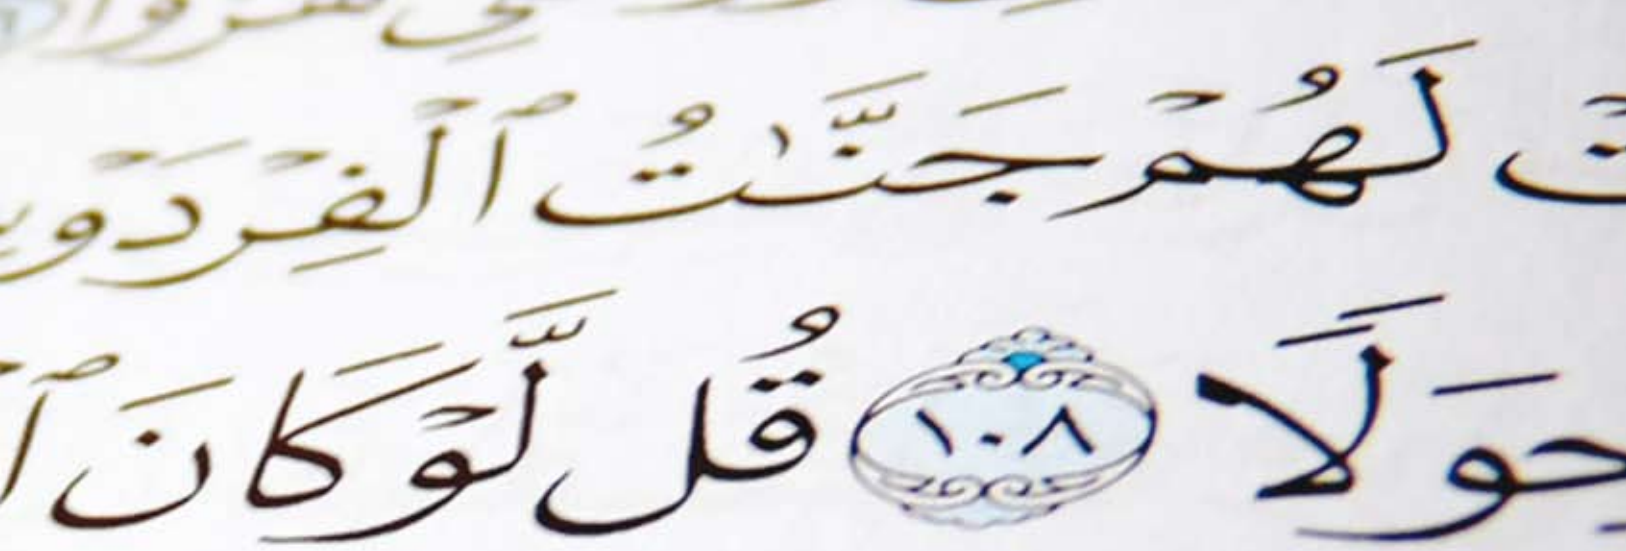 ت لَهُمْ جَنَّٰتُ ٱلْفِرْدَو
حِوَلًا ١٠٨ قُل لَّوْ كَانَ ٱ